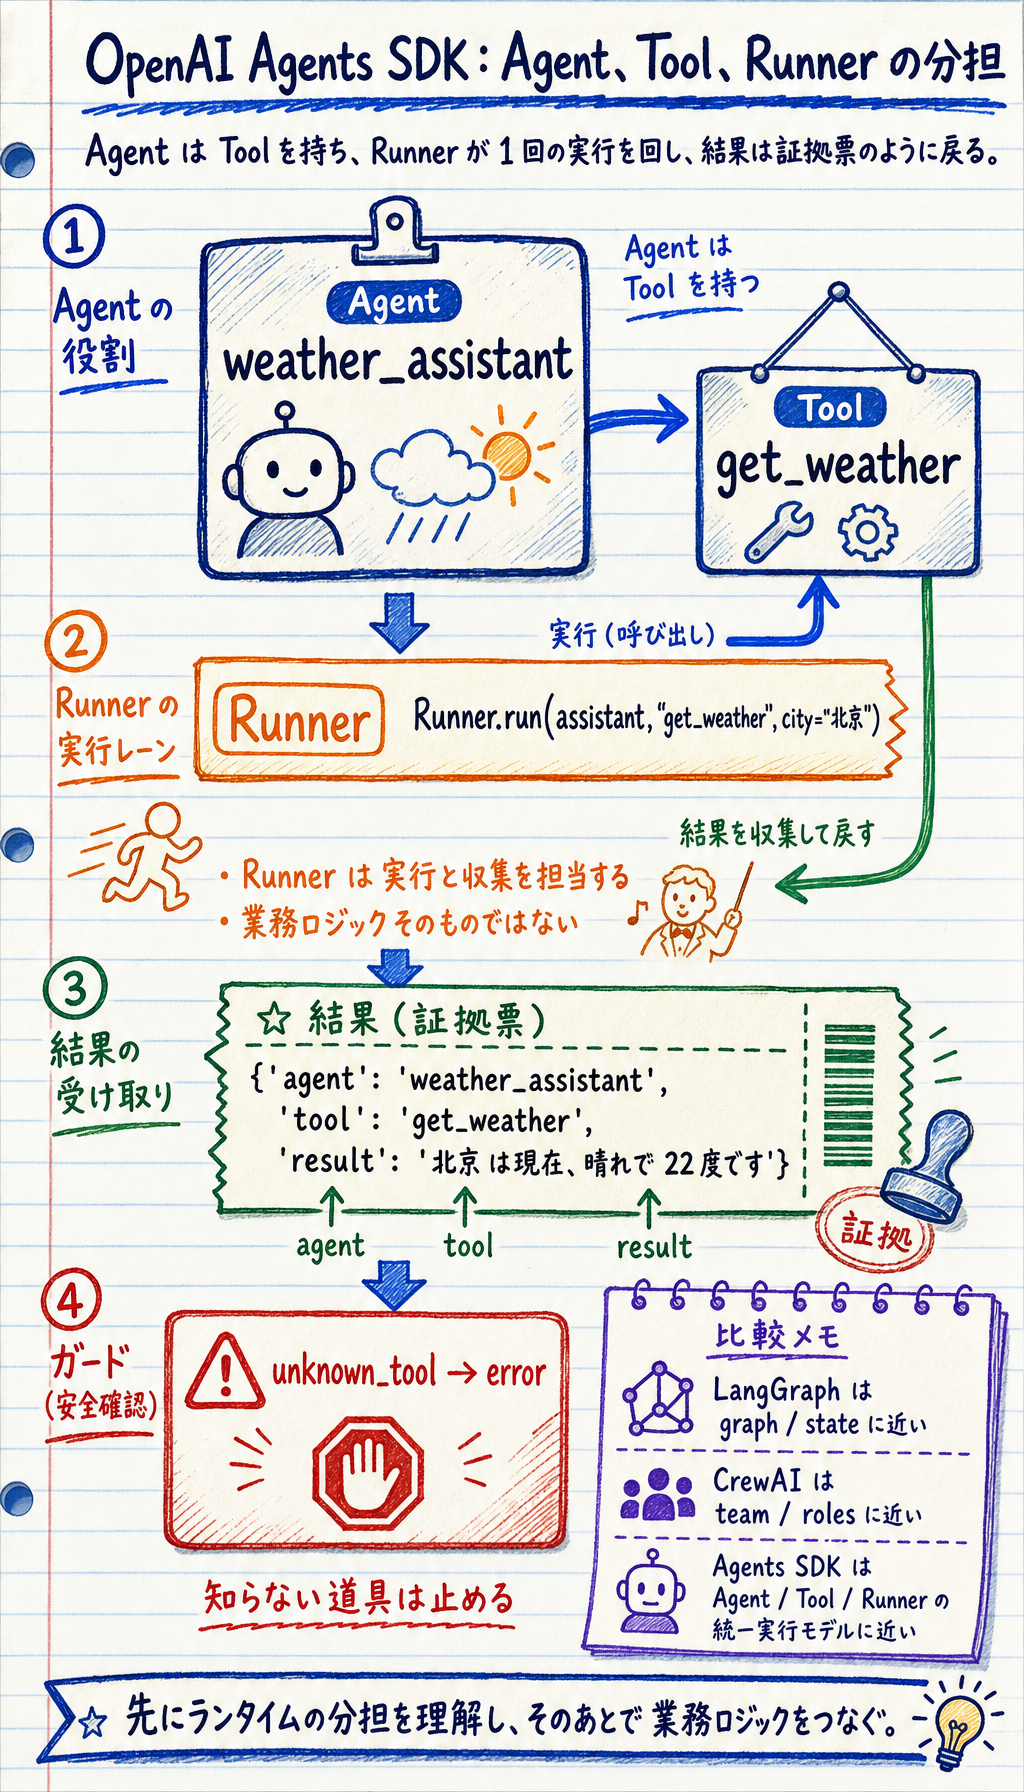 OpenAI Agents SDK：Agent、Tool、Runner の分担
Agent は Tool を持ち、Runner が 1 回の実行を回し、結果は証拠票のように戻る。
①
Agent の
役割
Agent
weather_assistant
Agent は
Tool を持つ
Tool
get_weather
実行（呼び出し）
②
Runner の
実行レーン
Runner
Runner.run(assistant, "get_weather", city="北京")
結果を収集して戻す
・Runner は 実行と収集を担当する
・業務ロジックそのものではない
③
結果の
受け取り
☆ 結果（証拠票）
{'agent': 'weather_assistant',
'tool': 'get_weather',
'result': '北京 は現在、晴れで 22 度です'}
agent
tool
result
証拠
④
ガード
（安全確認）
unknown_tool → error
知らない道具は止める
比較メモ
LangGraph は
graph / state に近い
CrewAI は
team / roles に近い
Agents SDK は
Agent / Tool / Runner の
統一実行モデルに近い
☆ 先にランタイムの分担を理解し、そのあとで 業務ロジックをつなぐ。